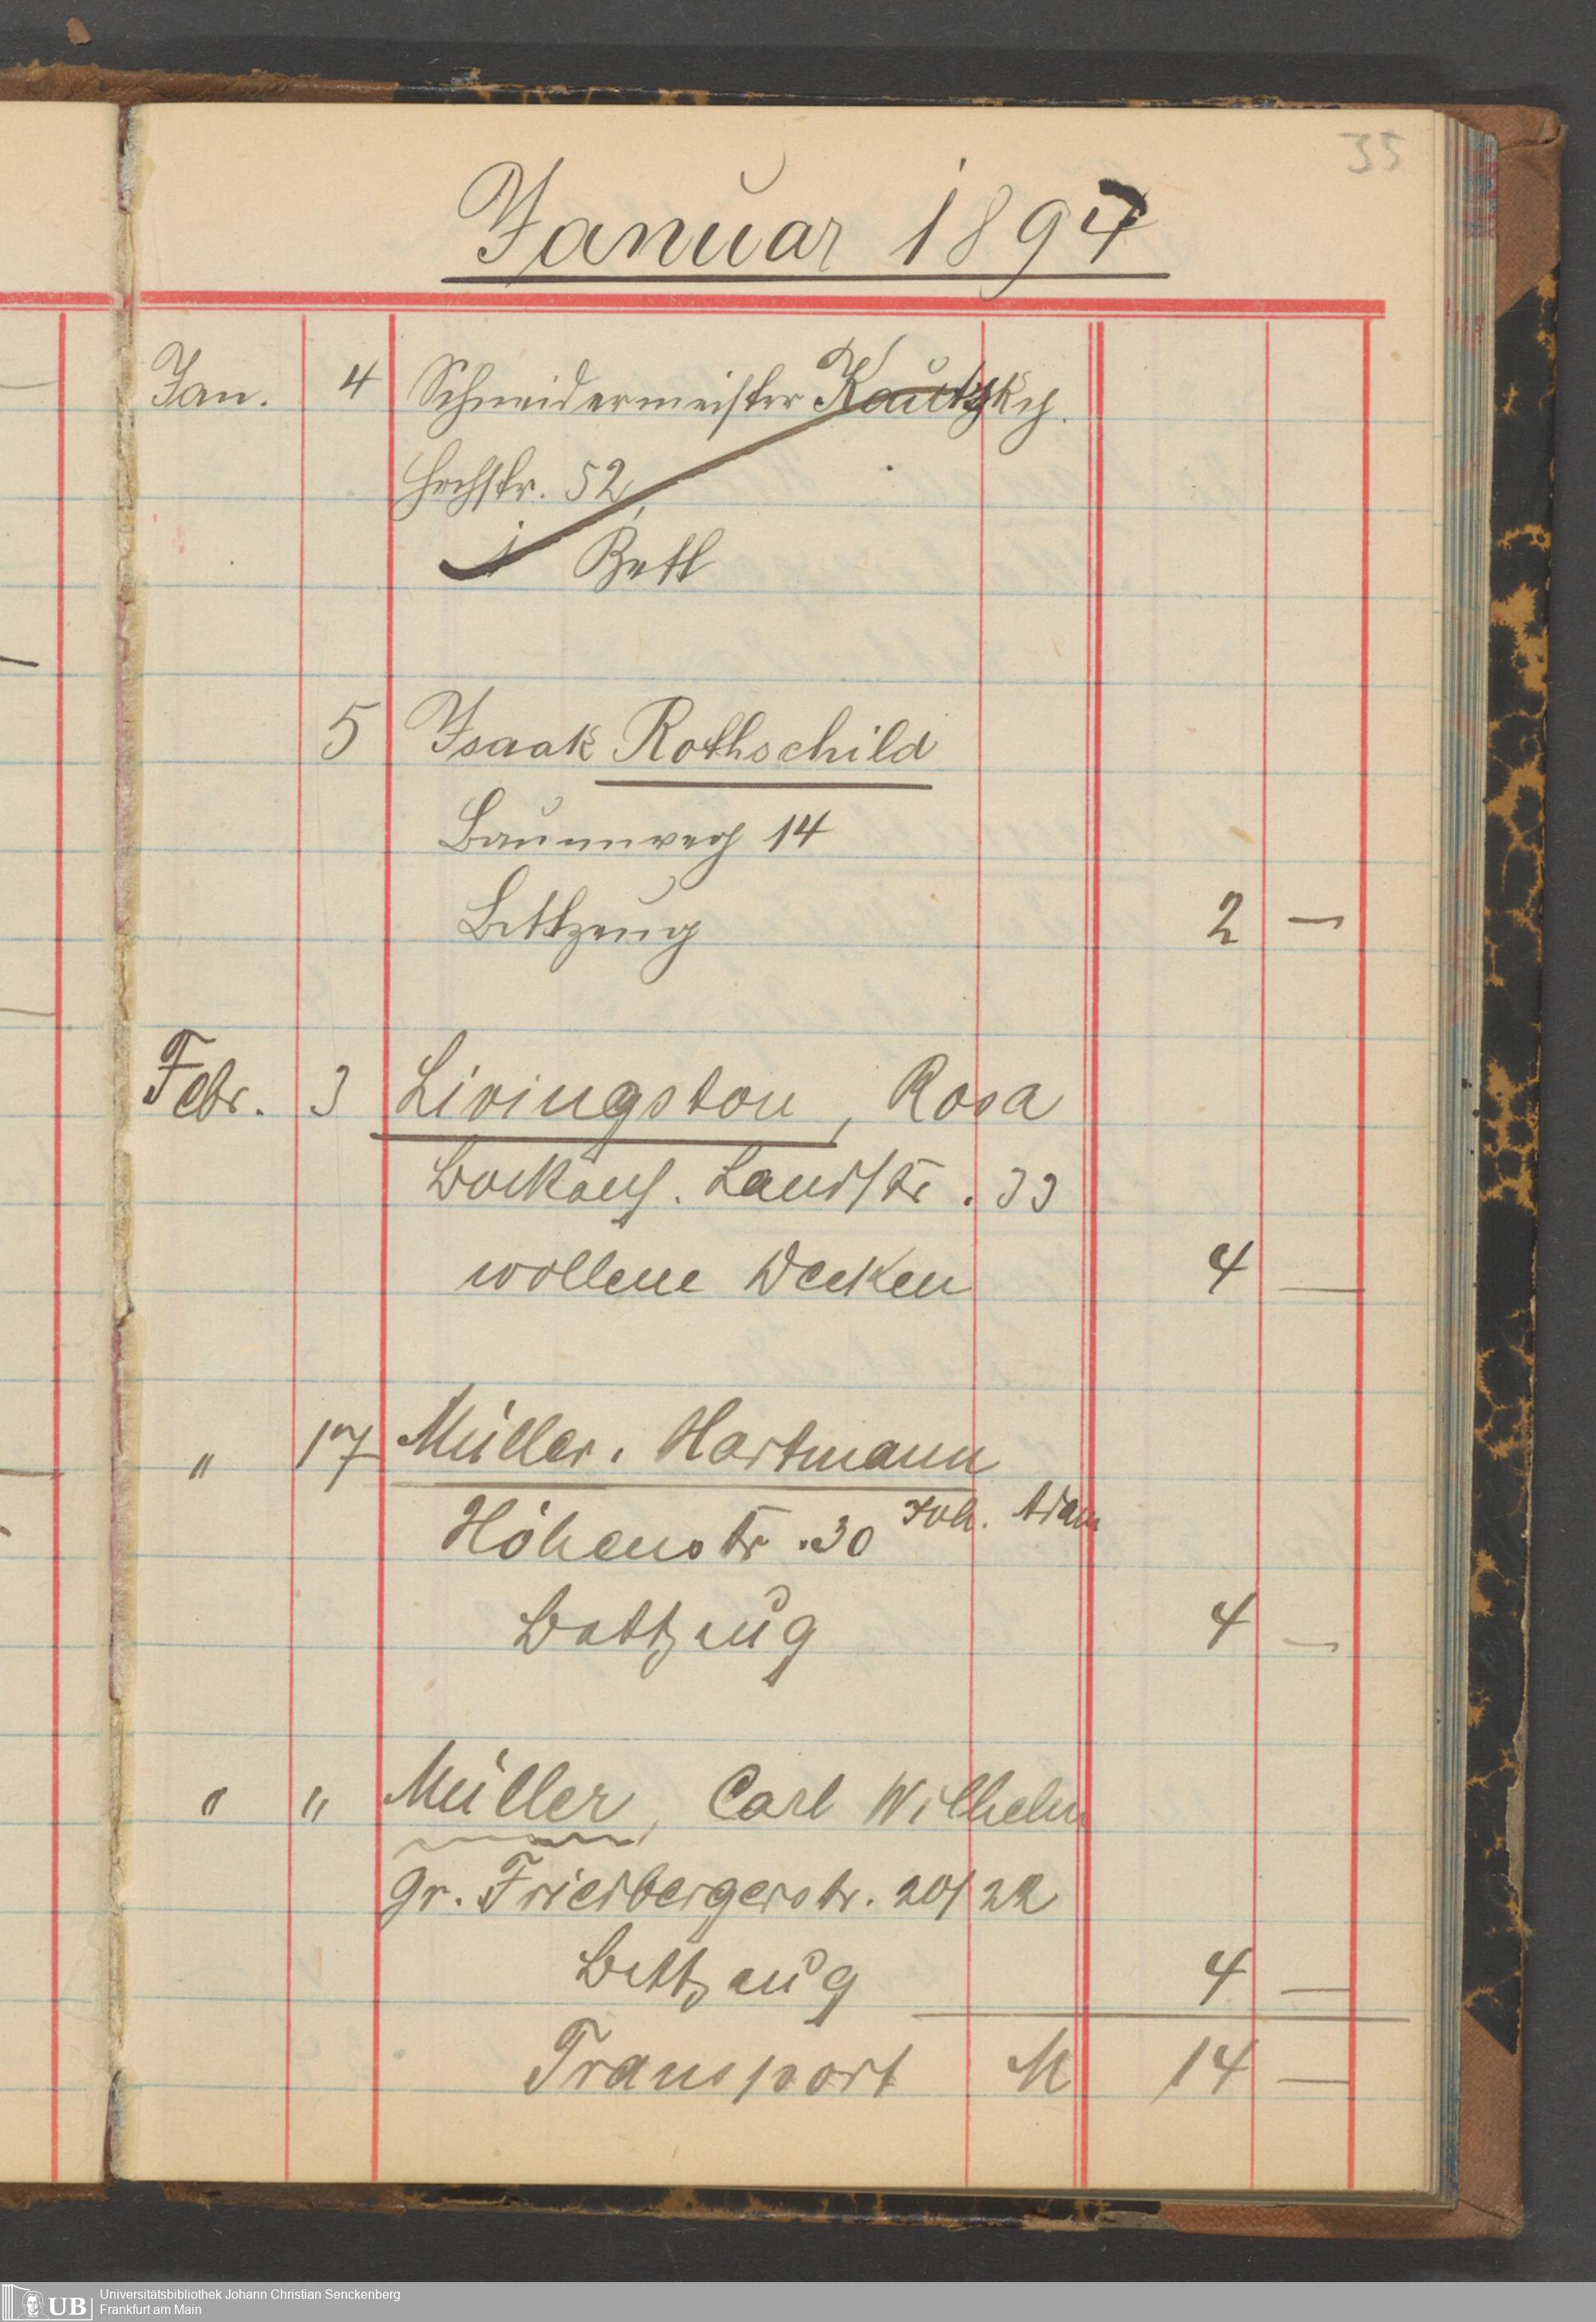 35
Januar 1897
Jan. 4 Schneidermeister Kautzky.
Hochstr. 52,
1 Bett
5 Isaak Rothschild
Baumweg 14
Bettzeug 2 —
Febr. 3 Livingston, Rosa
Bockenh. Landstr. 33
wollene Decken 4 —
" 17 Müller. Hartmann
Höhenstr. 30 Joh. Adam
Bettzeug 4 —
" " Müller, Carl Wilhelm
gr. Friedbergerstr. 20/22
Bettzeug 4 —
Transport M 14 —
UB Universitätsbibliothek Johann Christian Senckenberg
Frankfurt am Main